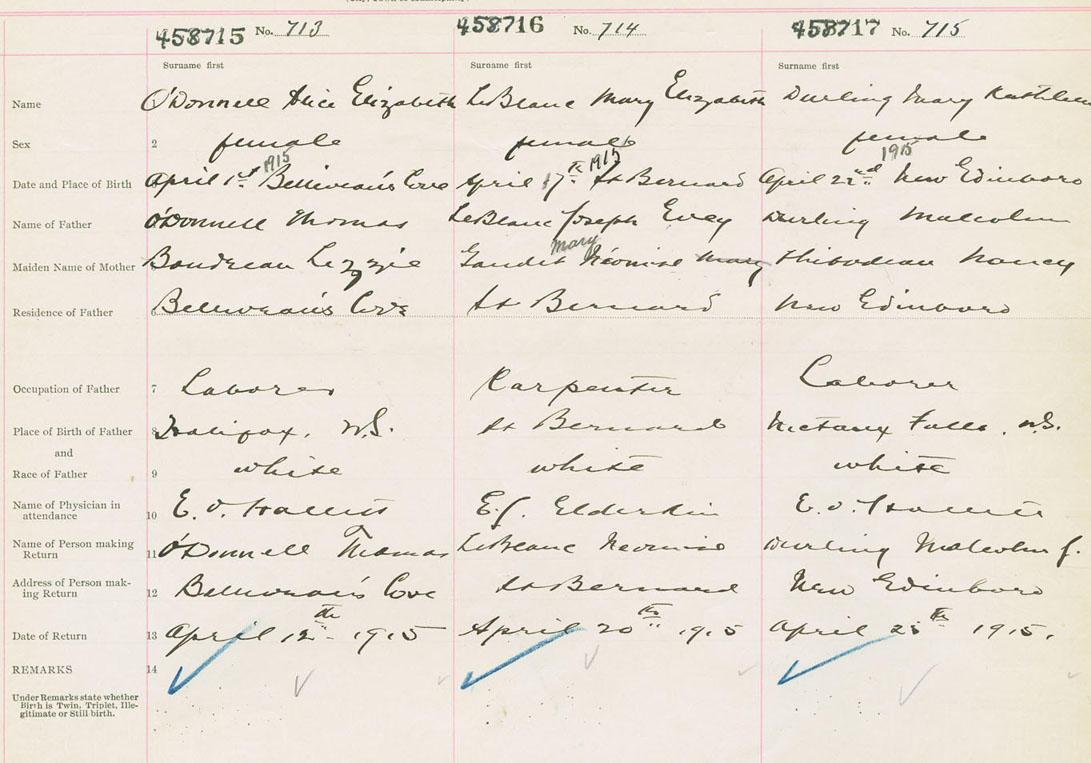 458715 No. 713 458716 No. 714 458717 No. 715
Surname first Surname first Surname first
Name O'Donnell Alice Elizabeth LeBlanc Mary Elizabeth Durling Mary Kathleen
Sex 2 female female female
1915 1915 1915
Date and Place of Birth April 1st Belliveau's Cove April 17th St Bernard April 22nd New Edinboro
Name of Father O'Donnell Thomas LeBlanc Joseph Durling Malcolm
Mary
Maiden Name of Mother Boudreau Lizzie Gaudet Néomise Mary Thibodeau Nancy
Residence of Father Belliveau's Cove St Bernard New Edinboro
Occupation of Father 7 Laborer Carpenter Laborer
Place of Birth of Father 8 Halifax, N.S. St Bernard Nictaux Falls, N.S.
and
Race of Father 9 white white white
Name of Physician in
attendance 10 E. E. Elderkin E.
Name of Person making
Return 11 O'Donnell Thomas LeBlanc Néomise Durling Malcolm J.
Address of Person mak-
ing Return 12 Belliveau's Cove St Bernard New Edinboro
Date of Return 13 April 12th 1915 April 20th 1915 April 25th 1915.
REMARKS 14
Under Remarks state whether
Birth is Twin, Triplet, Ille-
gitimate or Still birth.